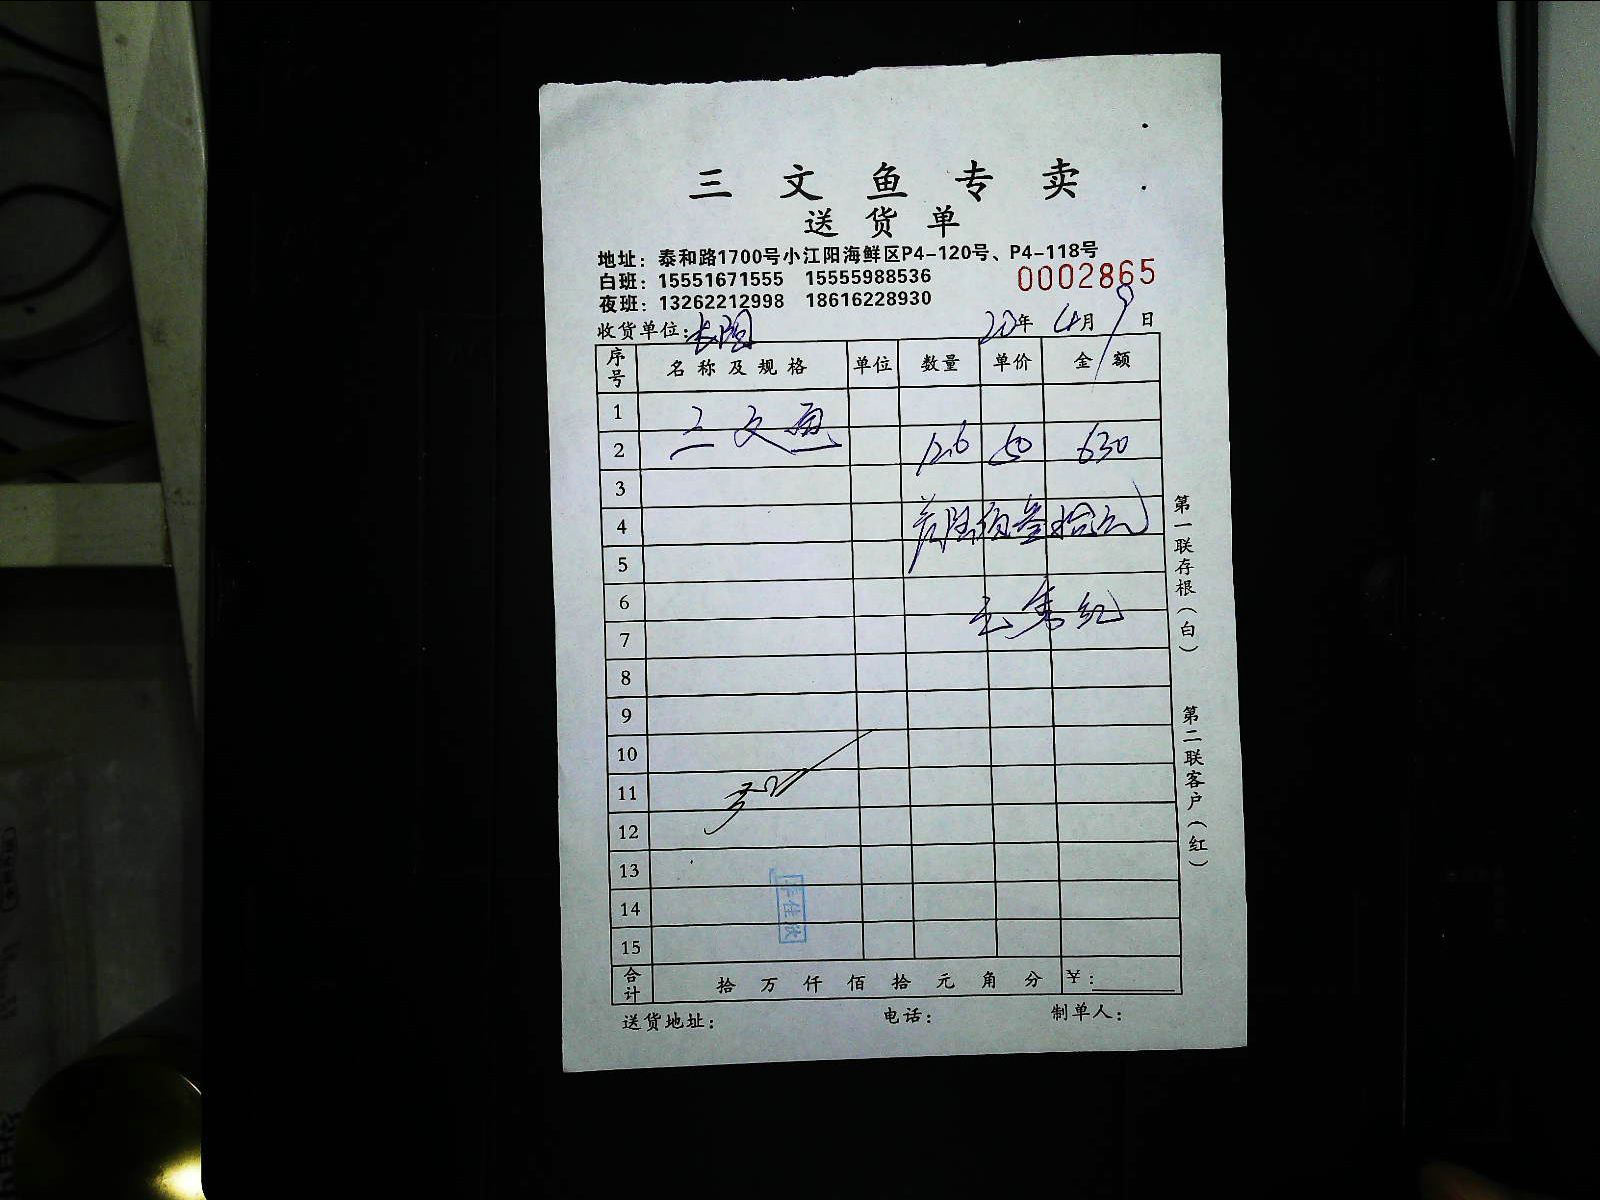 三文鱼专卖
送货单
地址：泰和路1700号小江阳海鲜区P4-120号、P4-118号
白班：15551671555 15555988536
0002865
夜班：13262212998 18616228930
收货单位： 20年 4月 9日
序号 名称及规格 单位 数量 单价 金额
1
2 三文鱼 12.6 50 630
3
4 陆佰叁拾元
5
6
7
8
9
10
11
12
13
14
15
合计 拾 万 仟 佰 拾 元 角 分 ￥：
送货地址： 电话： 制单人：
第一联存根（白）
第二联客户（红）